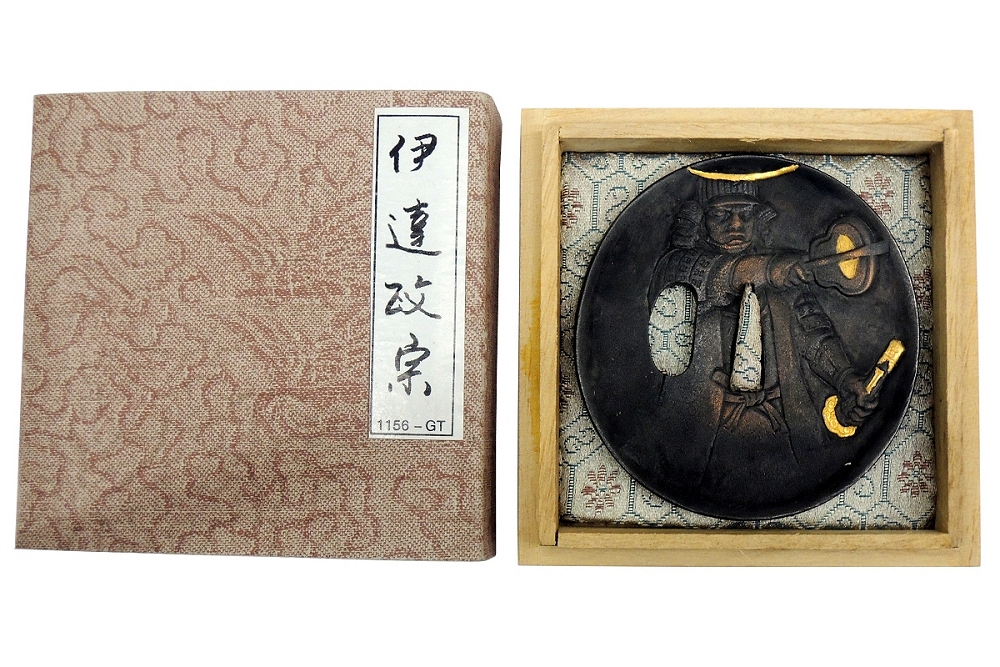 伊達政宗
1156-GT